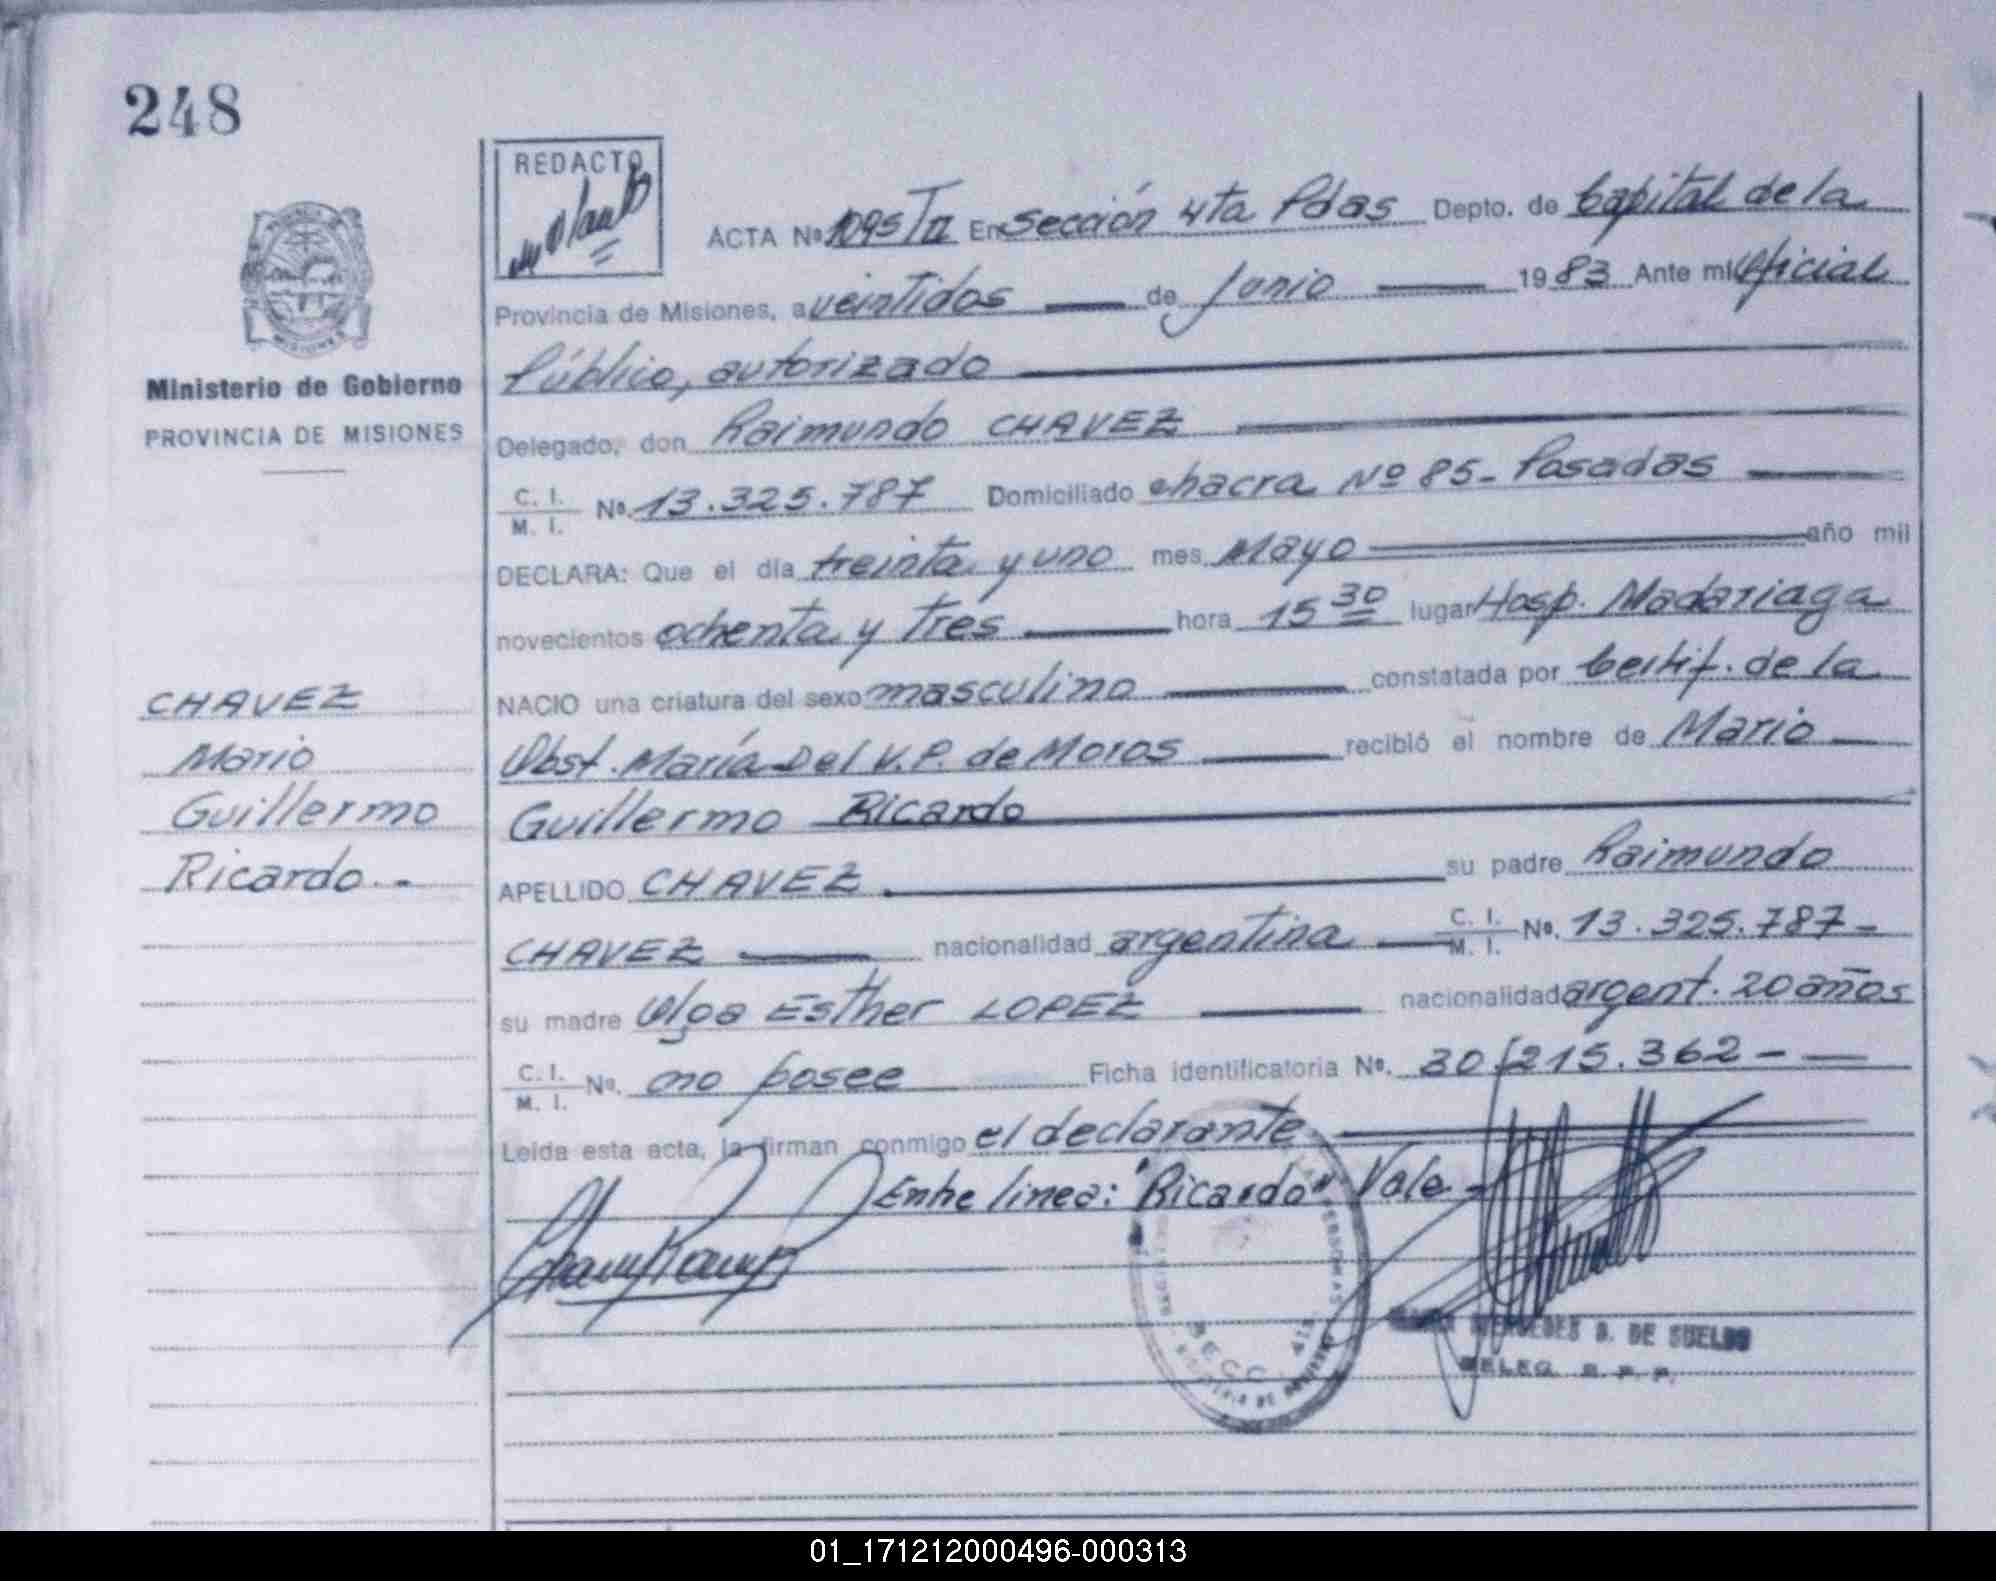 248
REDACTO
ACTA Nº 1095/TII En Sección 4ta Pdas Depto. de Capital de la
Provincia de Misiones, a veintidos de Junio 1983 Ante mi Oficial
Público, autorizado
Delegado, don Raimundo CHAVEZ
C. I. M. I. Nº. 13.325.787 Domiciliado chacra Nº 85- Posadas
DECLARA: Que el día treinta y uno mes Mayo año mil
novecientos ochenta y tres hora 15 30 lugar Hosp. Madariaga
NACIO una criatura del sexo masculino constatada por Certif. de la
Obst. María Del V.P. de Moros recibió el nombre de Mario
Guillermo Ricardo
APELLIDO CHAVEZ su padre Raimundo
CHAVEZ nacionalidad argentina C. I. M. I. Nº. 13.325.787-
su madre Olga Esther LOPEZ nacionalidad argent. 20 años
C. I. M. I. Nº. no posee Ficha identificatoria Nº. 30/215.362-
Leída esta acta, la firman conmigo el declarante
Entre linea: "Ricardo" Vale-
MERCEDES B. DE SUELDO
DELEG. R. P. P.
Ministerio de Gobierno
PROVINCIA DE MISIONES
CHAVEZ
Mario
Guillermo
Ricardo.-
01_171212000496-000313